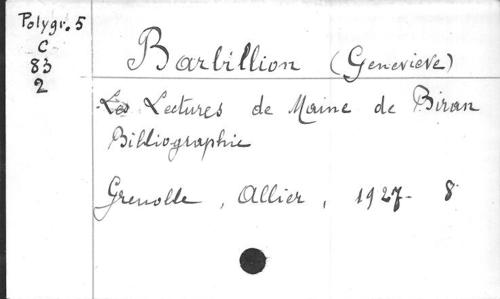 Polygr. 5
C
83
2
Barbillion (Geneviève)
Les Lectures de Maine de Biran
Bibliographie
Grenoble, Allier, 1927- 8